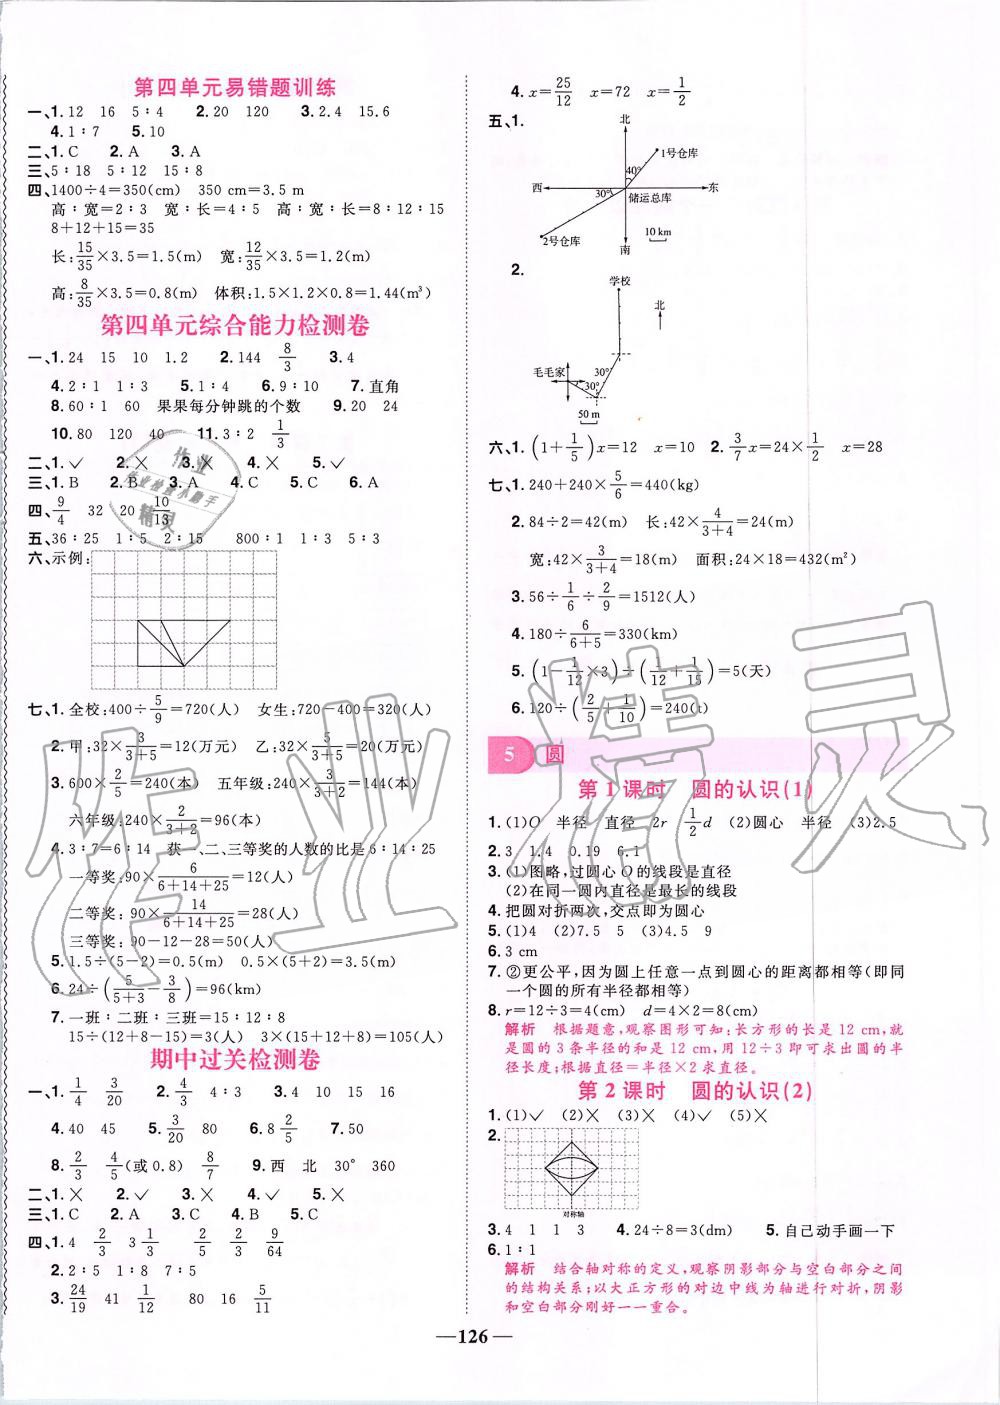 第四单元易错题训练
一、1.12 16 5∶4 2.20 120 3.2.4 15.6
4.1∶7 5.10
二、1.C 2.A 3.A
三、5∶18 5∶12 15∶8
四、1400÷4=350(cm) 350 cm=3.5 m
高∶宽=2∶3 宽∶长=4∶5 高∶宽∶长=8∶12∶15
8+12+15=35
长:15/35×3.5=1.5(m) 宽:12/35×3.5=1.2(m)
高:8/35×3.5=0.8(m) 体积:1.5×1.2×0.8=1.44(m³)
第四单元综合能力检测卷
一、1.24 15 10 1.2 2.144 8/3 3.4
4.2∶1 1∶3 5.1∶4 6.9∶10 7.直角
8.60∶1 60 果果每分钟跳的个数 9.20 24
10.80 120 40 11.3∶2 1/3
二、1.✓ 2.╳ 3.╳ 4.╳ 5.✓
三、1.B 2.B 3.A 4.C 5.C 6.A
四、9/4 32 20 10/13
五、36∶25 1∶5 2∶15 800∶1 1∶3 5∶3
六、示例:
七、1.全校:400÷5/9=720(人) 女生:720-400=320(人)
2.甲:32×3/(3+5)=12(万元) 乙:32×5/(3+5)=20(万元)
3.600×2/5=240(本) 五年级:240×3/(3+2)=144(本)
六年级:240×2/(3+2)=96(本)
4.3∶7=6∶14 获一、二、三等奖的人数的比是6∶14∶25
一等奖:90×6/(6+14+25)=12(人)
二等奖:90×14/(6+14+25)=28(人)
三等奖:90-12-28=50(人)
5.1.5÷(5-2)=0.5(m) 0.5×(5+2)=3.5(m)
6.24÷(5/(5+3)-3/8)=96(km)
7.一班∶二班∶三班=15∶12∶8
15÷(12+8-15)=3(人) 3×(15+12+8)=105(人)
期中过关检测卷
一、1.1/4 3/20 2.4/3 4∶3 3.4 10 15 16
4.40 45 5.3/20 80 6.8 2/5 7.50
8.2/3 4/5(或0.8) 8/7 9.西 北 30° 360
二、1.╳ 2.✓ 3.╳ 4.✓ 5.╳
三、1.C 2.A 3.C 4.B 5.C
四、1.4 2/3 3 1/3 2/5 2/3 9/64
2.2∶5 1∶8 7∶5
3.24/19 41 1/12 80 16 5/11
4.x=25/12 x=72 x=1/2
五、1.
北
1号仓库
40°
西
东
30°
储运总库
10 km
2号仓库
南
2.
学校
北
毛毛家
30°
30°
50 m
六、1.(1+1/5)x=12 x=10 2.3/7x=24×1/2 x=28
七、1.240+240×5/6=440(kg)
2.84÷2=42(m) 长:42×4/(3+4)=24(m)
宽:42×3/(3+4)=18(m) 面积:24×18=432(m²)
3.56÷1/6÷2/9=1512(人)
4.180÷6/(6+5)=330(km)
5.(1-1/12×3)÷(1/12+1/15)=5(天)
6.120÷(2/5+1/10)=240(t)
5 圆
第1课时 圆的认识(1)
1.(1)O 半径 直径 2r 1/2d (2)圆心 半径 (3)2.5
2.3 1.4 0.19 6.1
3.(1)图略,过圆心O的线段是直径
(2)在同一圆内直径是最长的线段
4.把圆对折两次,交点即为圆心
5.(1)4 (2)7.5 5 (3)4.5 9
6.3 cm
7.②更公平,因为圆上任意一点到圆心的距离都相等(即同
一个圆的所有半径都相等)
8.r=12÷3=4(cm) d=4×2=8(cm)
解析 根据题意,观察图形可知:长方形的长是12 cm,就
是圆的3条半径的和是12 cm,用12÷3即可求出圆的半
径长度;根据直径=半径×2求直径。
第2课时 圆的认识(2)
1.(1)✓ (2)╳ (3)╳ (4)✓ (5)╳
2.
对称轴
3.4 1 1 3 4.24÷8=3(dm) 5.自己动手画一下
6.1∶1
解析 结合轴对称的定义,观察阴影部分与空白部分之间
的结构关系;以大正方形的对边中线为轴进行对折,阴影
和空白部分刚好一一重合。
—126—
作业精灵